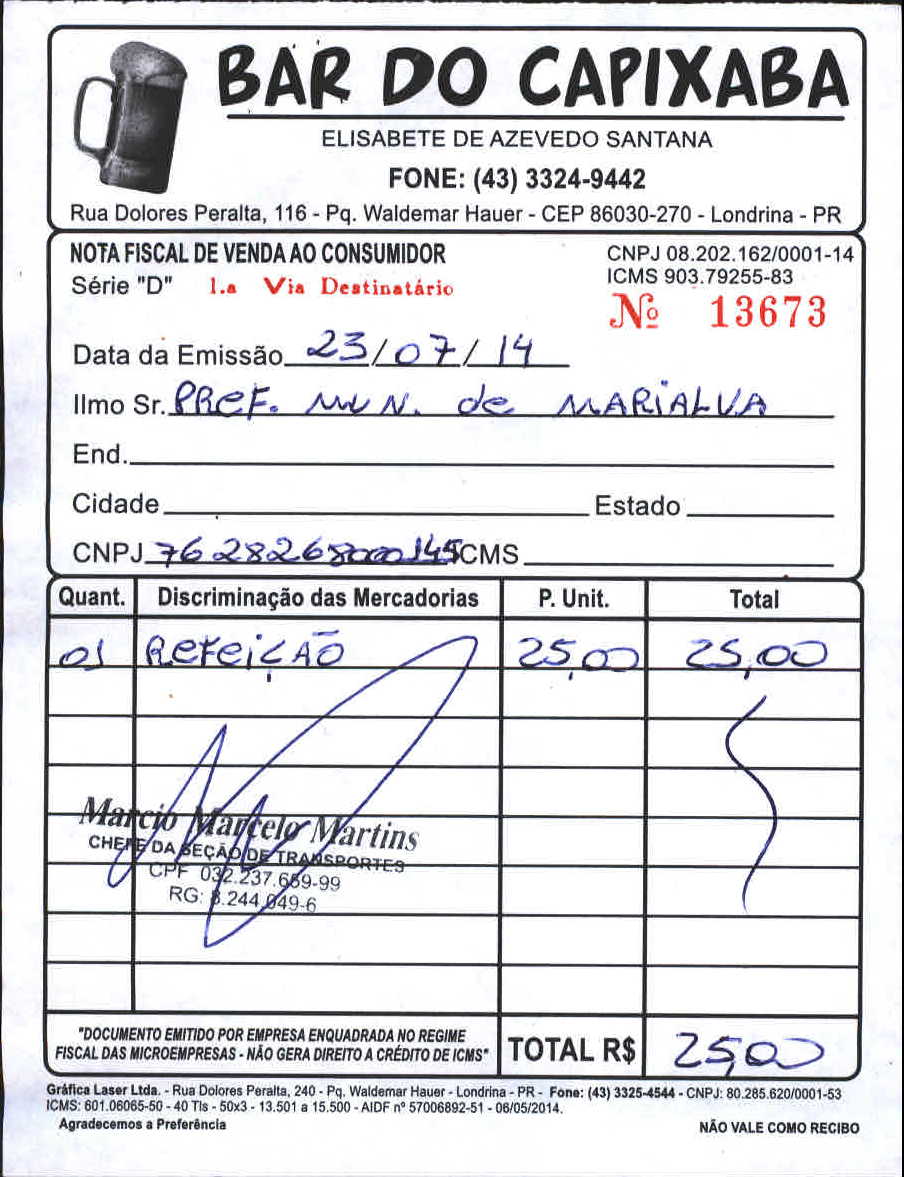 BAR DO CAPIXABA
ELISABETE DE AZEVEDO SANTANA
FONE: (43) 3324-9442
Rua Dolores Peralta, 116 - Pq. Waldemar Hauer - CEP 86030-270 - Londrina - PR
NOTA FISCAL DE VENDA AO CONSUMIDOR
CNPJ 08.202.162/0001-14
Série "D" 1.a Via Destinatário
ICMS 903.79255-83
Nº 13673
Data da Emissão 23/07/14
Ilmo Sr. PREF. MUN. de MARIALVA
End.
Cidade Estado
CNPJ 76282680000145 ICMS
Quant. Discriminação das Mercadorias P. Unit. Total
01 REFEIÇÃO 25,00 25,00
Marcio Marcelo Martins
CHEFE DA SEÇÃO DE TRANSPORTES
CPF 032.237.659-99
RG: 8.244.049-6
"DOCUMENTO EMITIDO POR EMPRESA ENQUADRADA NO REGIME
FISCAL DAS MICROEMPRESAS - NÃO GERA DIREITO A CRÉDITO DE ICMS"
TOTAL R$ 25,00
Gráfica Laser Ltda. - Rua Dolores Peralta, 240 - Pq. Waldemar Hauer - Londrina - PR - Fone: (43) 3325-4544 - CNPJ: 80.285.620/0001-53
ICMS: 601.06065-50 - 40 Tls - 50x3 - 13.501 a 15.500 - AIDF nº 57006892-51 - 06/05/2014.
Agradecemos a Preferência
NÃO VALE COMO RECIBO